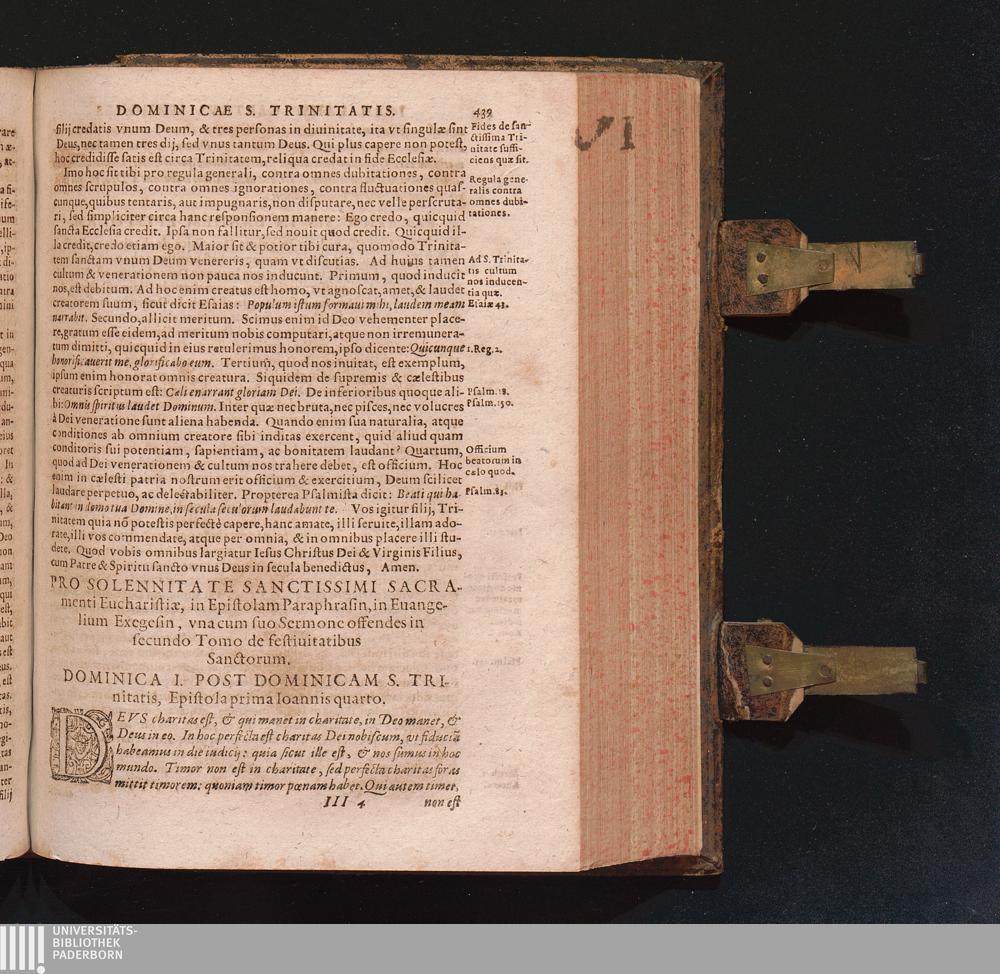 DOMINICAE S. TRINITATIS.
439
filij credatis vnum Deum, & tres personas in diuinitate, ita vt singulæ sint
Deus, nec tamen tres dij, sed vnus tantum Deus. Qui plus capere non potest,
hoc credidisse satis est circa Trinitatem, reliqua credat in fide Ecclesiæ.
Imo hoc sit tibi pro regula generali, contra omnes dubitationes, contra
omnes scrupulos, contra omnes ignorationes, contra fluctuationes quas-
cunque, quibus tentaris, aut impugnaris, non disputare, nec velle perscruta-
ri, sed simpliciter circa hanc responsionem manere: Ego credo, quicquid
sancta Ecclesia credit. Ipsa non fallitur, sed nouit quod credit. Quicquid il-
la credit, credo etiam ego. Maior sit & potior tibi cura, quomodo Trinita-
tem sanctam vnum Deum venereris, quam vt discutias. Ad huius tamen
cultum & venerationem non pauca nos inducunt. Primum, quod inducit
nos, est debitum. Ad hoc enim creatus est homo, vt agnoscat, amet, & laudet
creatorem suum, sicut dicit Esaias: Populum istum formaui mihi, laudem meam
narrabit. Secundo, allicit meritum. Scimus enim id Deo vehementer place-
re, gratum esse eidem, ad meritum nobis computari, atque non irremunera-
tum dimitti, quicquid in eius retulerimus honorem, ipso dicente: Quicunque
honorificauerit me, glorificabo eum. Tertium, quod nos inuitat, est exemplum,
ipsum enim honorat omnis creatura. Siquidem de supremis & cælestibus
creaturis scriptum est: Cæli enarrant gloriam Dei. De inferioribus quoque ali-
bi: Omnis spiritus laudet Dominum. Inter quæ nec bruta, nec pisces, nec volucres
à Dei veneratione sunt aliena habenda. Quando enim sua naturalia, atque
conditiones ab omnium creatore sibi inditas exercent, quid aliud quam
conditoris sui potentiam, sapientiam, ac bonitatem laudant? Quartum,
quod ad Dei venerationem & cultum nos trahere debet, est officium. Hoc
enim in cælesti patria nostrum erit officium & exercitium, Deum scilicet
laudare perpetuo, ac delectabiliter. Propterea Psalmista dicit: Beati qui ha-
bitant in domo tua Domine, in secula seculorum laudabunt te. Vos igitur filij, Tri-
nitatem quia nō potestis perfectè capere, hanc amate, illi seruite, illam ado-
rate, illi vos commendate, atque per omnia, & in omnibus placere illi stu-
dete. Quod vobis omnibus largiatur Iesus Christus Dei & Virginis Filius,
cum Patre & Spiritu sancto vnus Deus in secula benedictus, Amen.
Fides de san-
ctissima Tri-
nitate suffi-
ciens quæ sit.
Regula gene-
ralis contra
omnes dubi-
tationes.
Ad S. Trinita-
tis cultum
nos inducen-
tia quæ.
Esaiæ 43.
1. Reg. 2.
Psalm. 18.
Psalm. 150.
Officium
beatorum in
cælo quod.
Psalm. 83.
PRO SOLENNITATE SANCTISSIMI SACRA-
menti Eucharistiæ, in Epistolam Paraphrasin, in Euange-
lium Exegesin, vna cum suo Sermone offendes in
secundo Tomo de festiuitatibus
Sanctorum.
DOMINICA I. POST DOMINICAM S. TRI-
nitatis, Epistola prima Ioannis quarto.
DEVS charitas est, & qui manet in charitate, in Deo manet, &
Deus in eo. In hoc perfecta est charitas Dei nobiscum, vt fiduciā
habeamus in die iudicij: quia sicut ille est, & nos sumus in hoc
mundo. Timor non est in charitate, sed perfecta charitas foras
mittit timorem: quoniam timor pœnam habet. Qui autem timet,
III 4
non est
VI
UNIVERSITÄTS-
BIBLIOTHEK
PADERBORN